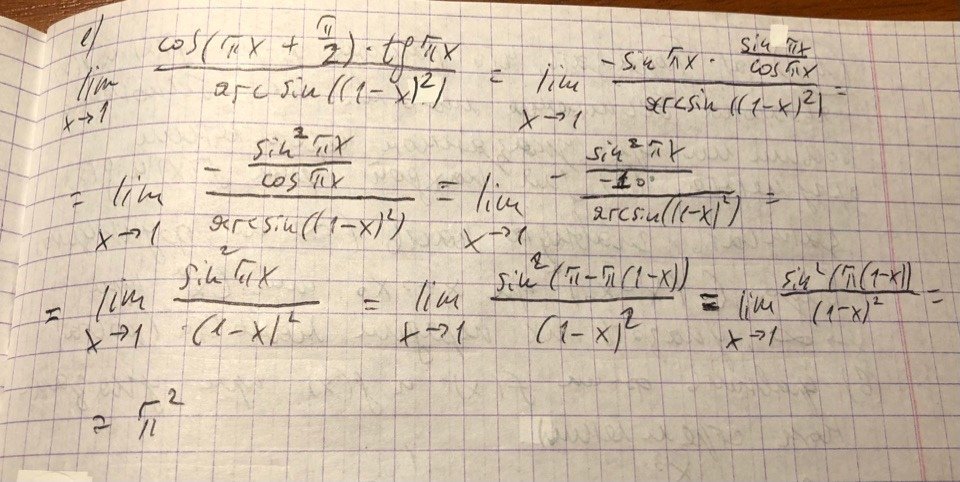 е) lim x→1 (cos(πx + π/2) · tg πx) / (arcsin((1-x)²)) = lim x→1 (-sin πx · (sin πx / cos πx)) / (arcsin((1-x)²)) =
= lim x→1 (- (sin² πx / cos πx)) / (arcsin((1-x)²)) = lim x→1 (- (sin² πx / -1)) / (arcsin((1-x)²)) =
= lim x→1 (sin² πx) / ((1-x)²) = lim x→1 (sin² (π-π(1-x))) / ((1-x)²) = lim x→1 (sin² (π(1-x))) / ((1-x)²) =
= π²